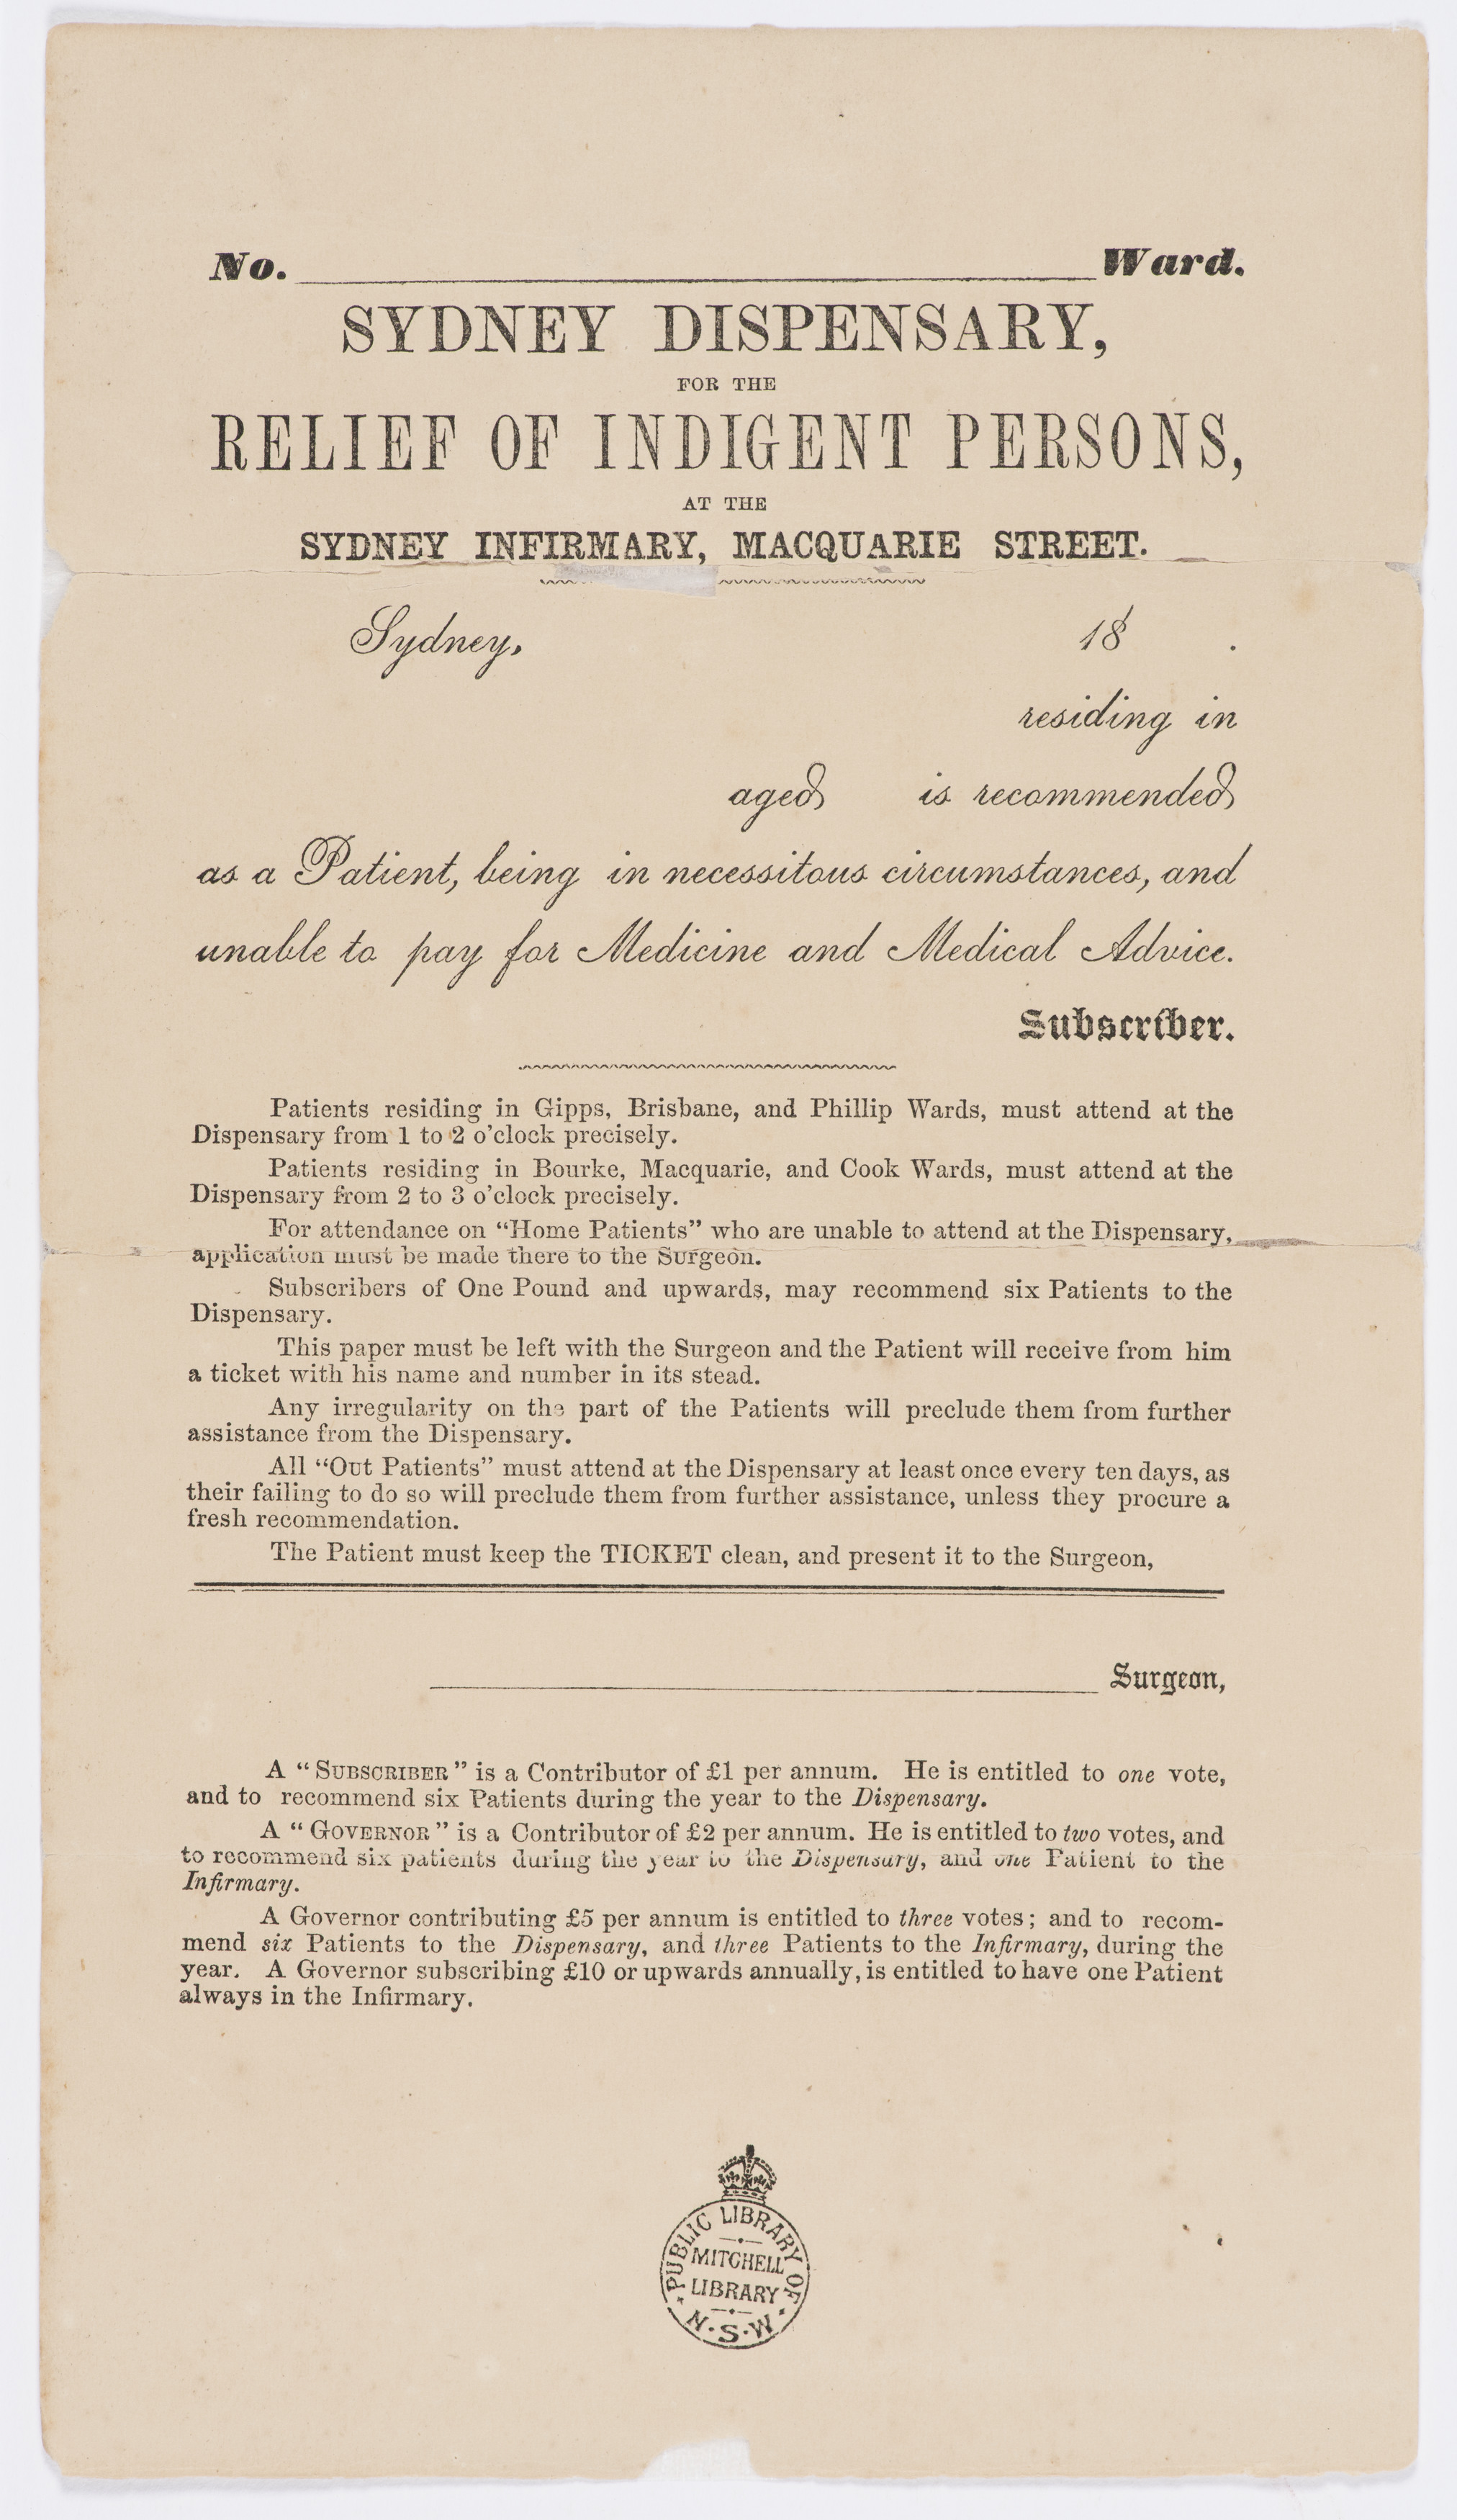 No. Ward.
SYDNEY DISPENSARY,
FOR THE
RELIEF OF INDIGENT PERSONS,
AT THE
SYDNEY INFIRMARY, MACQUARIE STREET.
Sydney, 18 .
residing in
aged is recommended
as a Patient, being in necessitous circumstances, and
unable to pay for Medicine and Medical Advice.
Subscriber.
Patients residing in Gipps, Brisbane, and Phillip Wards, must attend at the
Dispensary from 1 to 2 o'clock precisely.
Patients residing in Bourke, Macquarie, and Cook Wards, must attend at the
Dispensary from 2 to 3 o'clock precisely.
For attendance on "Home Patients" who are unable to attend at the Dispensary,
application must be made there to the Surgeon.
Subscribers of One Pound and upwards, may recommend six Patients to the
Dispensary.
This paper must be left with the Surgeon and the Patient will receive from him
a ticket with his name and number in its stead.
Any irregularity on the part of the Patients will preclude them from further
assistance from the Dispensary.
All "Out Patients" must attend at the Dispensary at least once every ten days, as
their failing to do so will preclude them from further assistance, unless they procure a
fresh recommendation.
The Patient must keep the TICKET clean, and present it to the Surgeon,
Surgeon,
A "SUBSCRIBER" is a Contributor of £1 per annum. He is entitled to one vote,
and to recommend six Patients during the year to the Dispensary.
A "GOVERNOR" is a Contributor of £2 per annum. He is entitled to two votes, and
to recommend six patients during the year to the Dispensary, and one Patient to the
Infirmary.
A Governor contributing £5 per annum is entitled to three votes; and to recom-
mend six Patients to the Dispensary, and three Patients to the Infirmary, during the
year. A Governor subscribing £10 or upwards annually, is entitled to have one Patient
always in the Infirmary.
PUBLIC LIBRARY OF
MITCHELL
LIBRARY
N·S·W